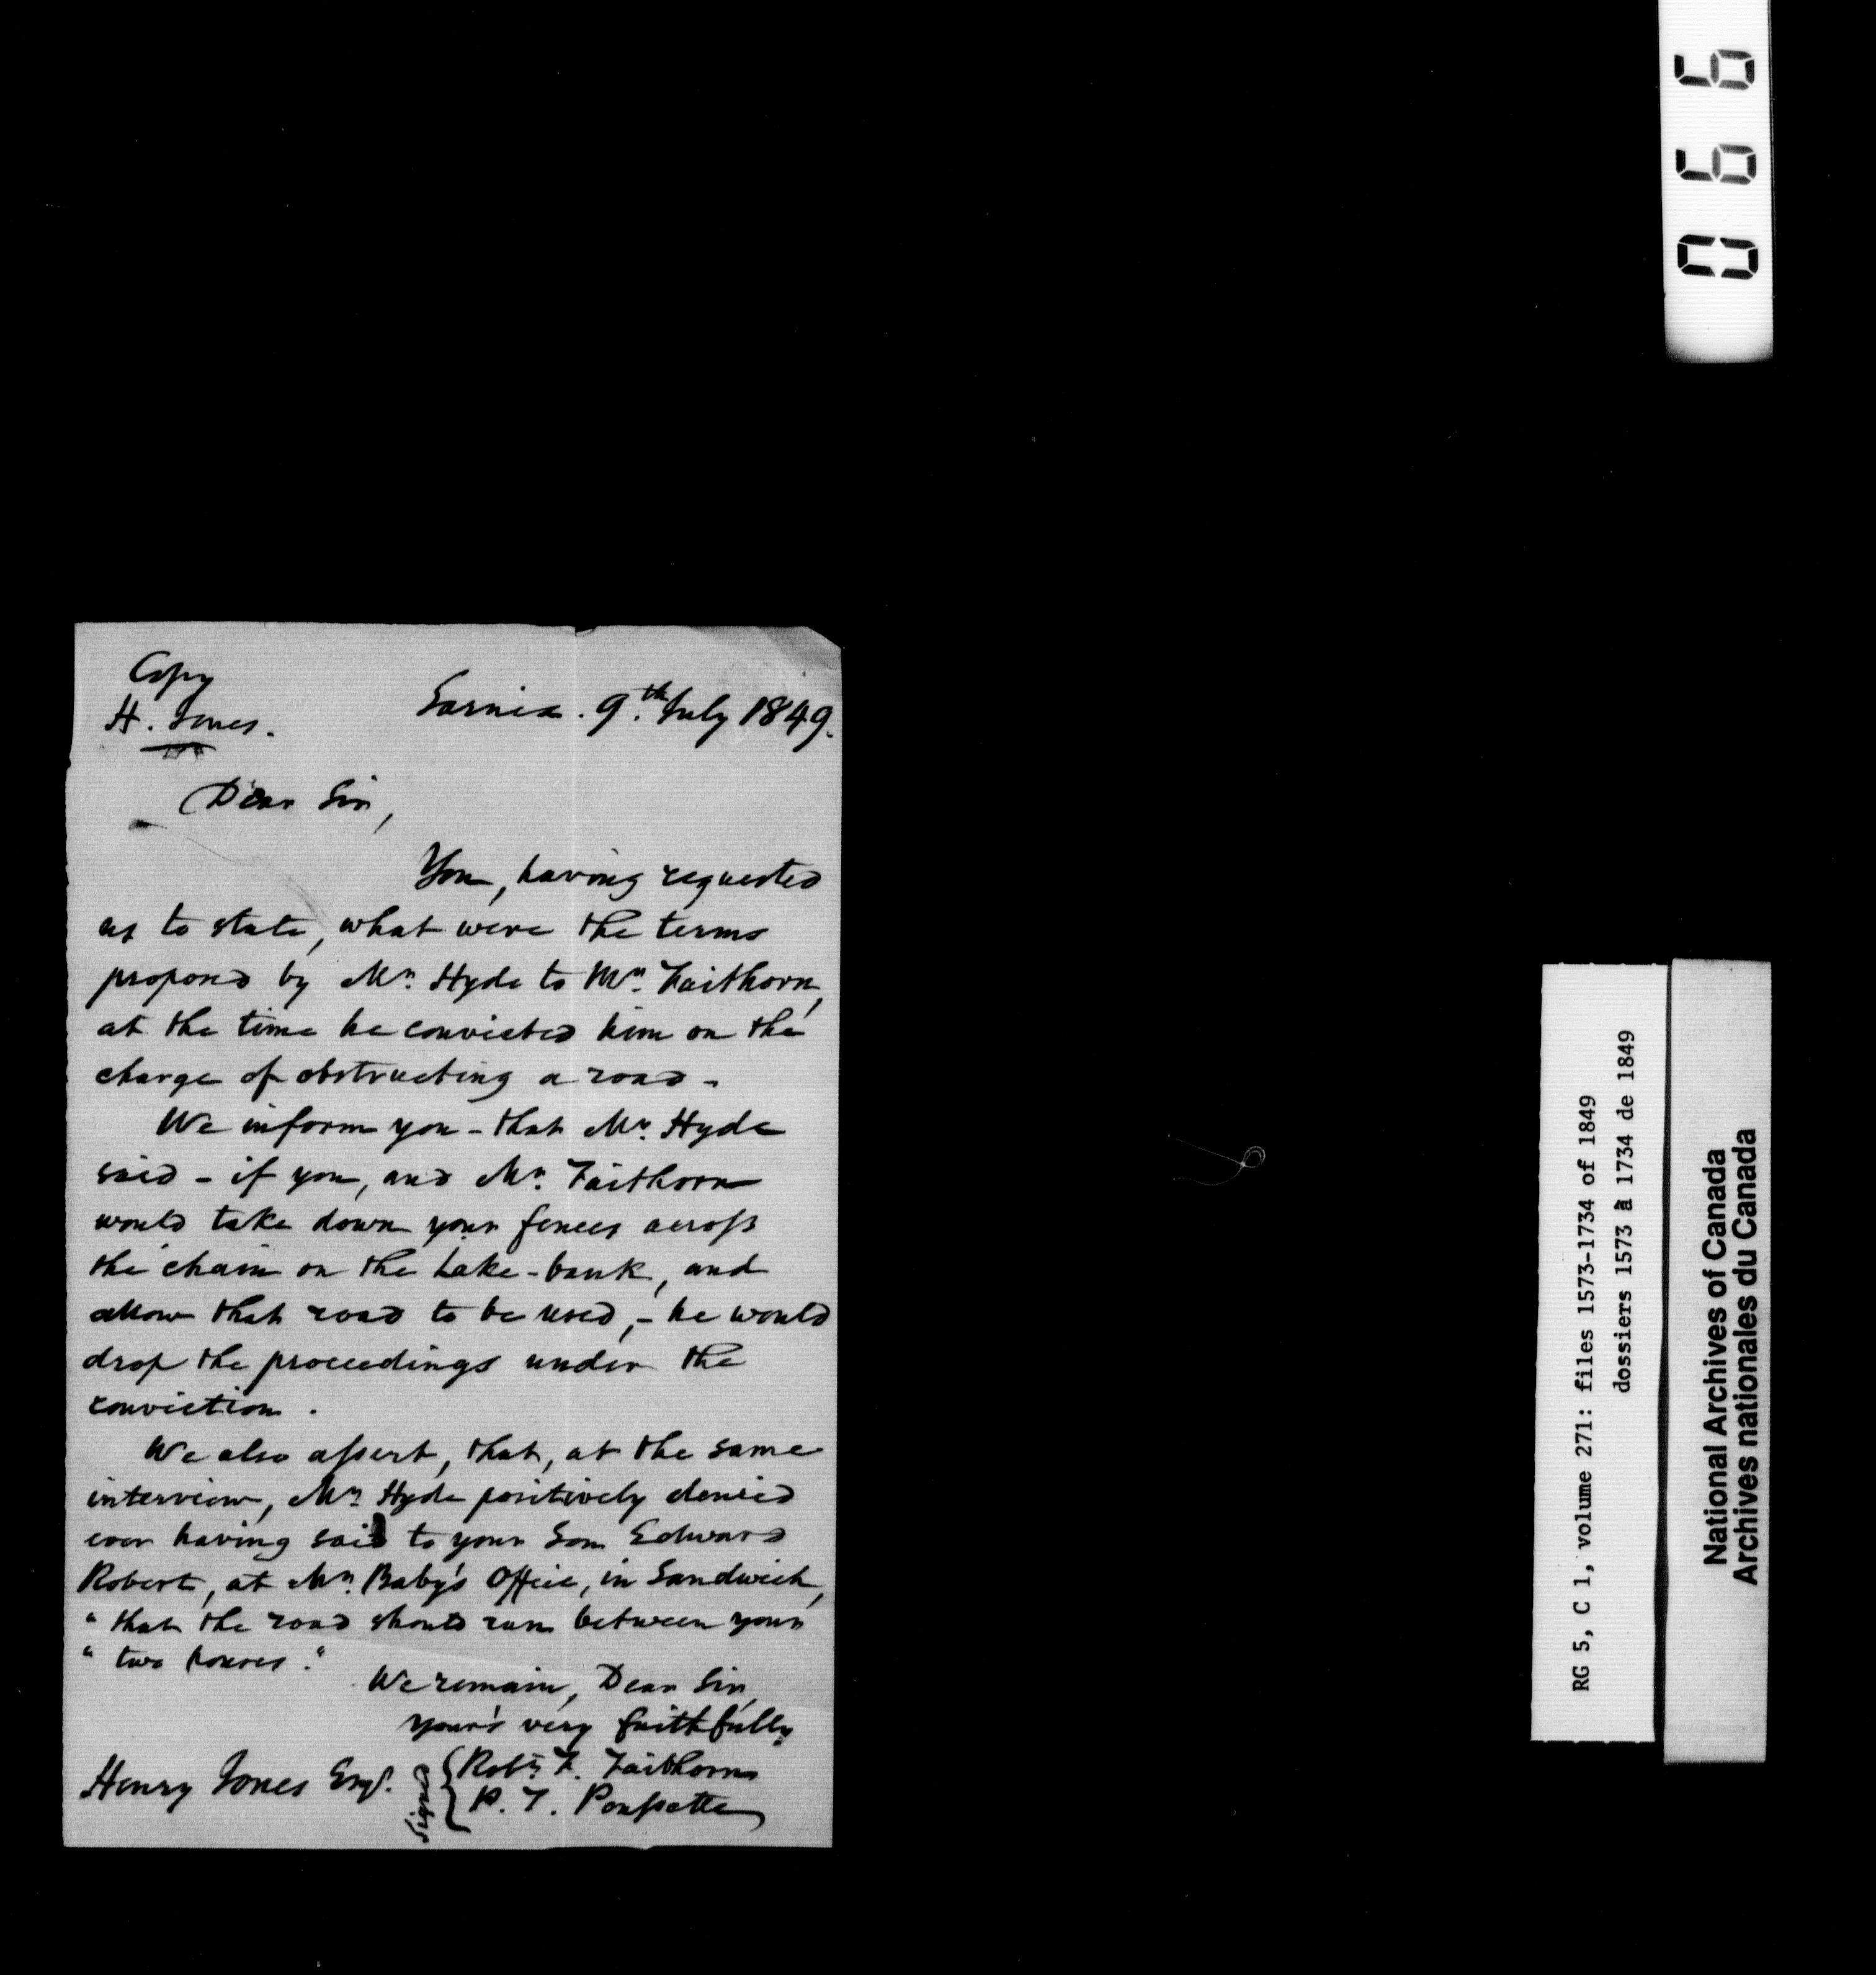 Copy
H. Jones.
Sarnia. 9.th July 1849.
Dear Sir,
You, having requested
us to state, what were the terms
proposed by Mr. Hyde to Mr. Faithorn,
at the time he convicted him on the
charge of obstructing a road -
We inform you - that Mr. Hyde
said - if you, and Mr. Faithorn
would take down your fences across
the chain on the Lake-bank, and
allow that road to be used, - he would
drop the proceedings under the
conviction.
We also assert, that, at the same
interview, Mr. Hyde positively denied
ever having said to your Son Edward
Robert, at Mr. Baby's Office, in Sandwich,
" that the road should run between your
" two houses."
We remain, Dear Sir,
your's very faithfully,
Henry Jones Esqr.
signed
Robt. F. Faithorn
P. T. Poussette
066
RG 5, C 1, volume 271: files 1573-1734 of 1849
dossiers 1573 à 1734 de 1849
National Archives of Canada
Archives nationales du Canada